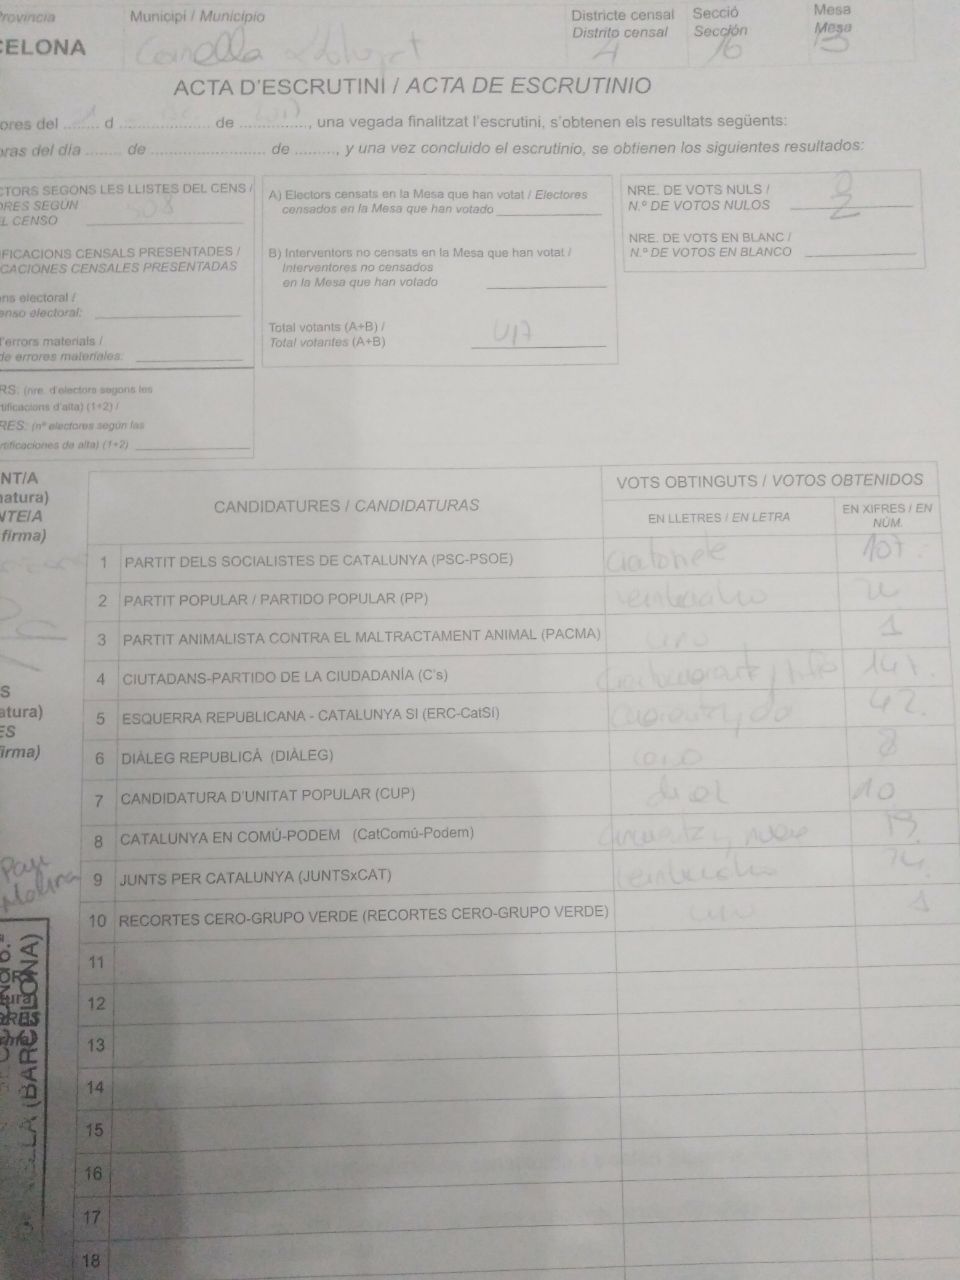 Provincia
Municipi / Municipio
Districte censal
Secció
Mesa
CELONA
Distrito censal
Sección
Mesa
4
16
B
ACTA D'ESCRUTINI / ACTA DE ESCRUTINIO
ores del ........ d .................... de ..............., una vegada finalitzat l'escrutini, s'obtenen els resultats següents:
oras del día ........ de ........................ de ........, y una vez concluido el escrutinio, se obtienen los siguientes resultados:
CTORS SEGONS LES LLISTES DEL CENS /
ORES SEGÚN
EL CENSO 508
IFICACIONS CENSALS PRESENTADES /
CACIONES CENSALES PRESENTADAS
ens electoral /
enso electoral:
d'errors materials /
de errores materiales:
RS: (nre. d'electors segons les
rtificacions d'alta) (1+2) /
RES: (nº electores según las
rtificaciones de alta) (1+2)
A) Electors censats en la Mesa que han votat / Electores
censados en la Mesa que han votado
B) Interventors no censats en la Mesa que han votat /
Interventores no censados
en la Mesa que han votado
Total votants (A+B) /
Total votantes (A+B)
NRE. DE VOTS NULS /
N.º DE VOTOS NULOS 2
NRE. DE VOTS EN BLANC /
N.º DE VOTOS EN BLANCO
NT/A
natura)
NTE/A
firma)
CANDIDATURES / CANDIDATURAS
VOTS OBTINGUTS / VOTOS OBTENIDOS
EN LLETRES / EN LETRA
EN XIFRES / EN
NÚM.
1 PARTIT DELS SOCIALISTES DE CATALUNYA (PSC-PSOE) 107
2 PARTIT POPULAR / PARTIDO POPULAR (PP)
3 PARTIT ANIMALISTA CONTRA EL MALTRACTAMENT ANIMAL (PACMA) uno 1
4 CIUTADANS-PARTIDO DE LA CIUDADANÍA (C's)
5 ESQUERRA REPUBLICANA - CATALUNYA SI (ERC-CatSí) 42
6 DIÀLEG REPUBLICÀ (DIÀLEG)
7 CANDIDATURA D'UNITAT POPULAR (CUP) diez 10
8 CATALUNYA EN COMÚ-PODEM (CatComú-Podem)
9 JUNTS PER CATALUNYA (JUNTSxCAT)
10 RECORTES CERO-GRUPO VERDE (RECORTES CERO-GRUPO VERDE) uno 1
11
12
13
14
15
16
17
18
S
atura)
ES
firma)
Molina
(BARCELONA)